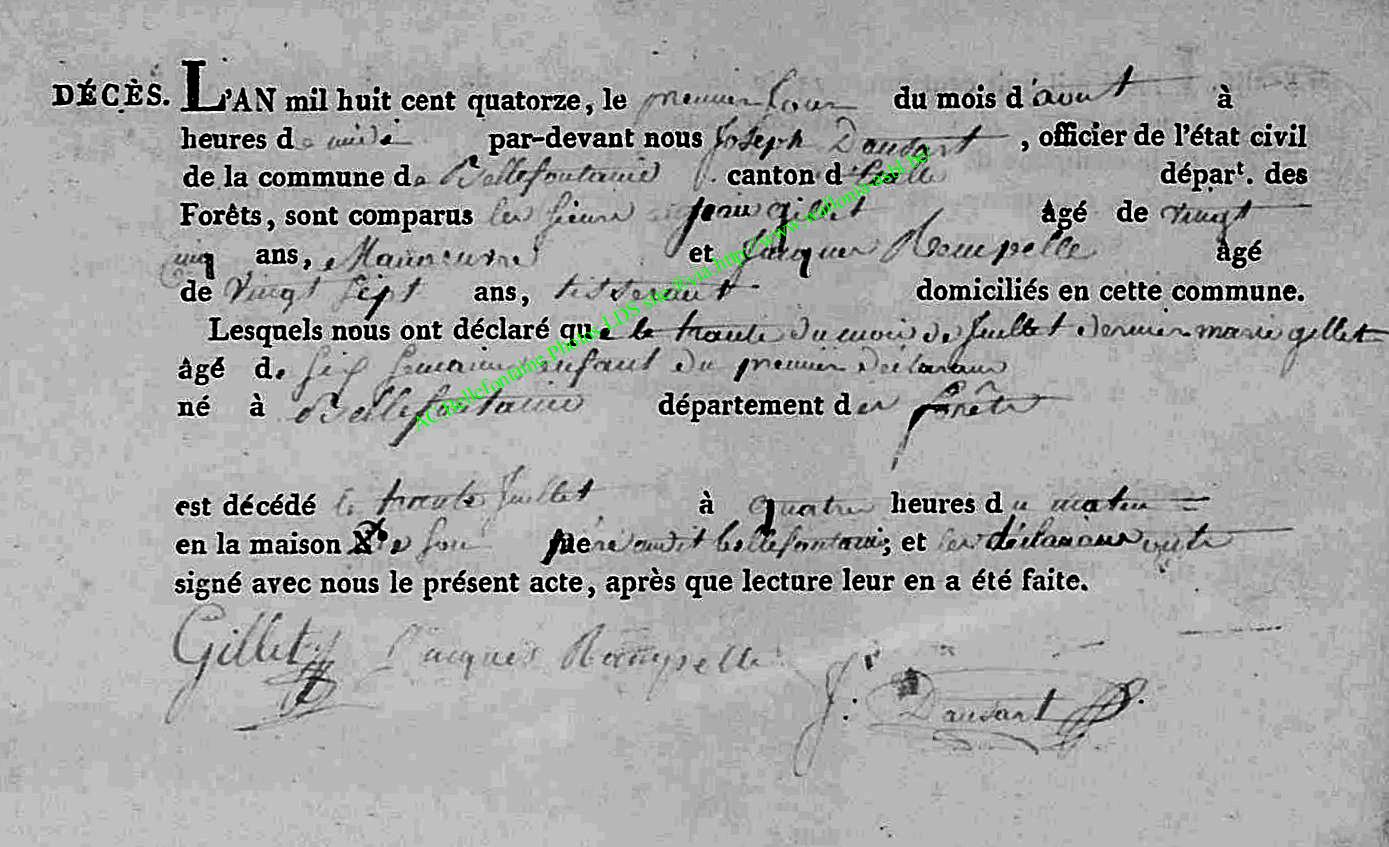 DÉCÈS. L'AN mil huit cent quatorze, le premier jour du mois d'aout à
heures de midi par-devant nous Joseph Dausart, officier de l'état civil
de la commune de Bellefontaine canton d' départ. des
Forêts, sont comparus les sieurs jean gillet âgé de vingt
cinq ans, Manoeuvre et Jacques Rempelle âgé
de vingt sept ans, tisserant domiciliés en cette commune.
Lesquels nous ont déclaré que le trente du mois de juillet dernier marie gillet
âgé de six semaines enfant du premier déclarant
né à Bellefontaine département des forêts
est décédé le trente juillet à quatre heures du matin
en la maison de son père audit bellefontaine; et les déclarans ont
signé avec nous le présent acte, après que lecture leur en a été faite.
Gillet Jacques Rempelle
J. Dausart
AC Bellefontaine Photos LDS via http://www.wallonia-asbl.be